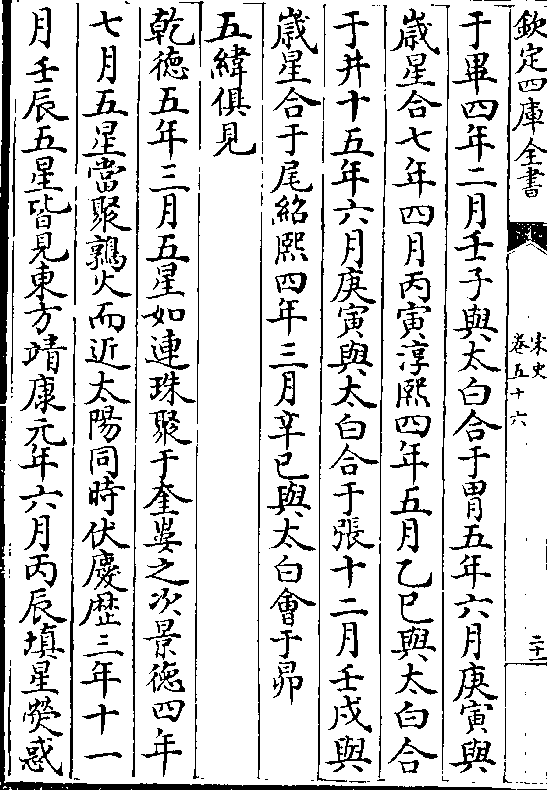 欽定四庫全書
宋史
卷五十六
二十一
于畢四年二月壬子與太白合于胃五年六月庚寅與
歳星合七年四月丙寅淳熙四年五月乙巳與太白合
于井十五年六月庚寅與太白合于張十二月壬戌與
歳星合于尾紹熙四年三月辛巳與太白會于昴
五緯俱見
乾徳五年三月五星如連珠聚于奎婁之次景徳四年
七月五星當聚鶉火而近太陽同時伏慶歴三年十一
月壬辰五星皆見東方靖康元年六月丙辰填星熒惑